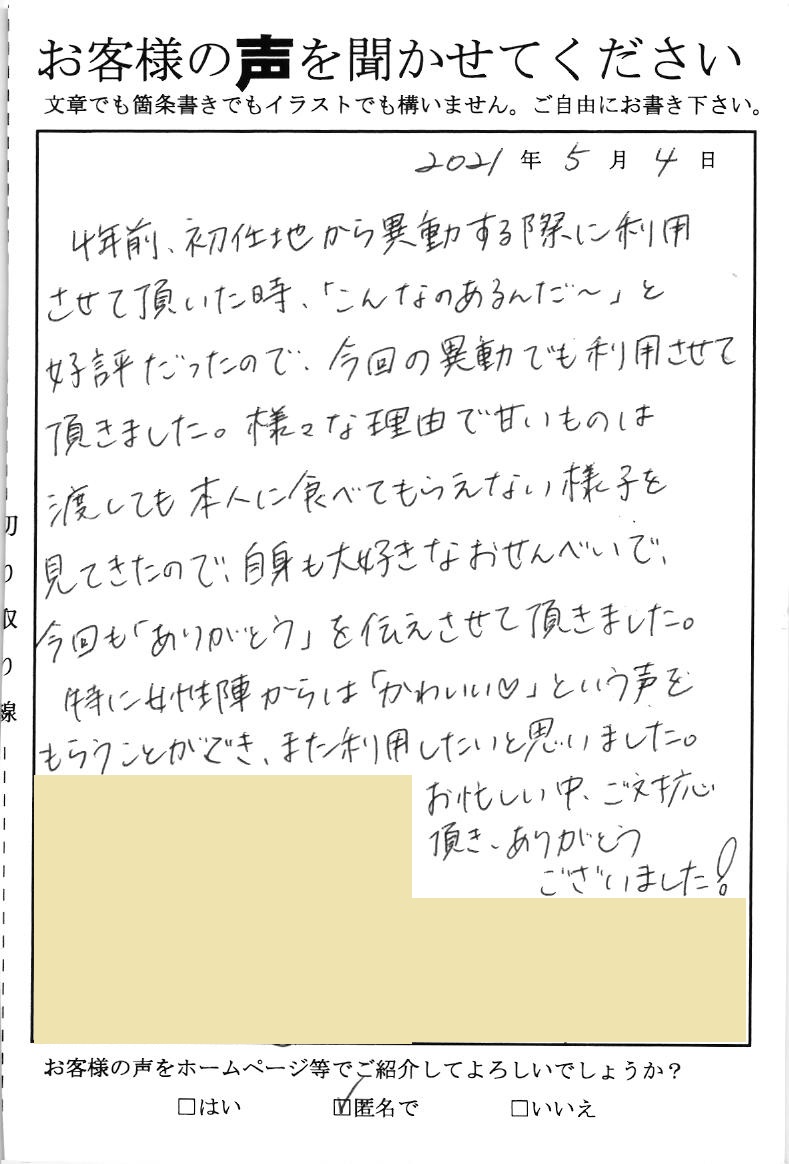 お客様の声を聞かせてください
文章でも箇条書きでもイラストでも構いません。ご自由にお書き下さい。
2021年5月4日
4年前、初任地から異動する際に利用
させて頂いた時、「こんなのあるんだ～」と
好評だったので、今回の異動でも利用させて
頂きました。様々な理由で甘いものは
渡しても本人に食べてもらえない様子を
見てきたので、自身も大好きなおせんべいで、
今回も「ありがとう」を伝えさせて頂きました。
特に女性陣からは「かわいい♡」という声を
もらうことができ、また利用したいと思いました。
お忙しい中、ご対応
頂き、ありがとう
ございました!
切り取り線
お客様の声をホームページ等でご紹介してよろしいでしょうか?
□はい ☑匿名で □いいえ